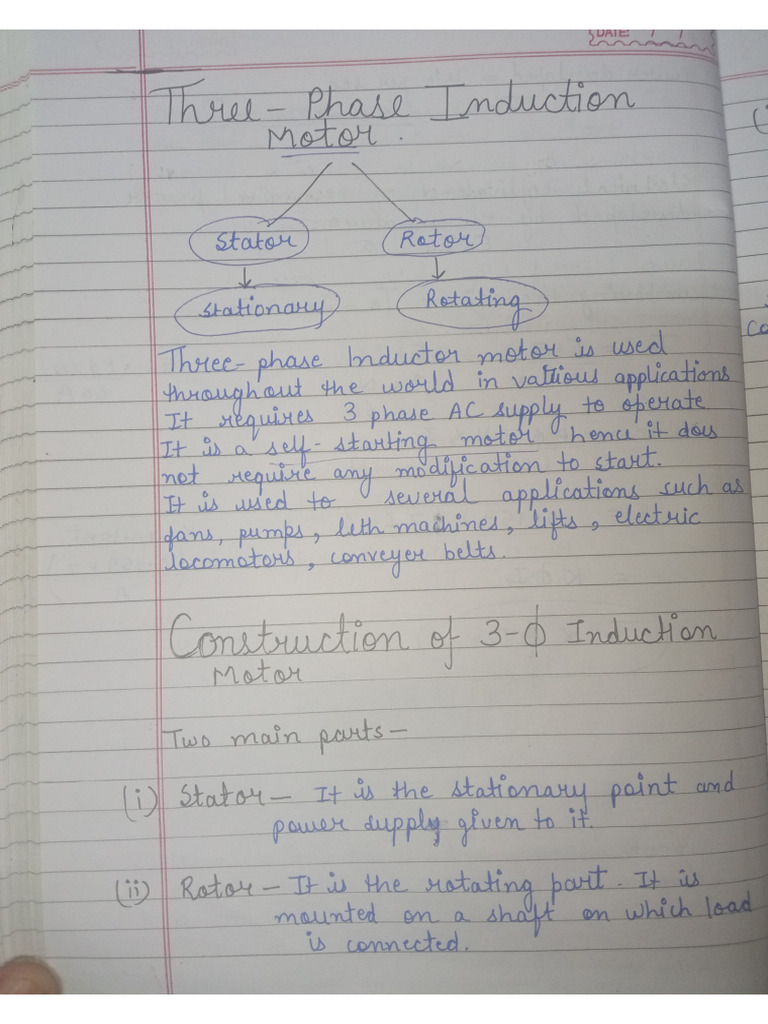 DATE: / /
Three-Phase Induction
Motor.
Stator Rotor
Stationary Rotating
Three-phase Inductor motor is used
throughout the world in vatious applications
It requires 3 phase AC supply to operate
It is a self-starting motor hence it does
not require any modification to start.
It is used to several applications such as
fans, pumps, leth machines, lifts, electric
locomotors, conveyer belts.
Construction of 3-ϕ Induction
Motor
Two main parts-
(i) Stator- It is the stationary point and
power supply given to it.
(ii) Rotor- It is the rotating part. It is
mounted on a shaft on which load
is connected.